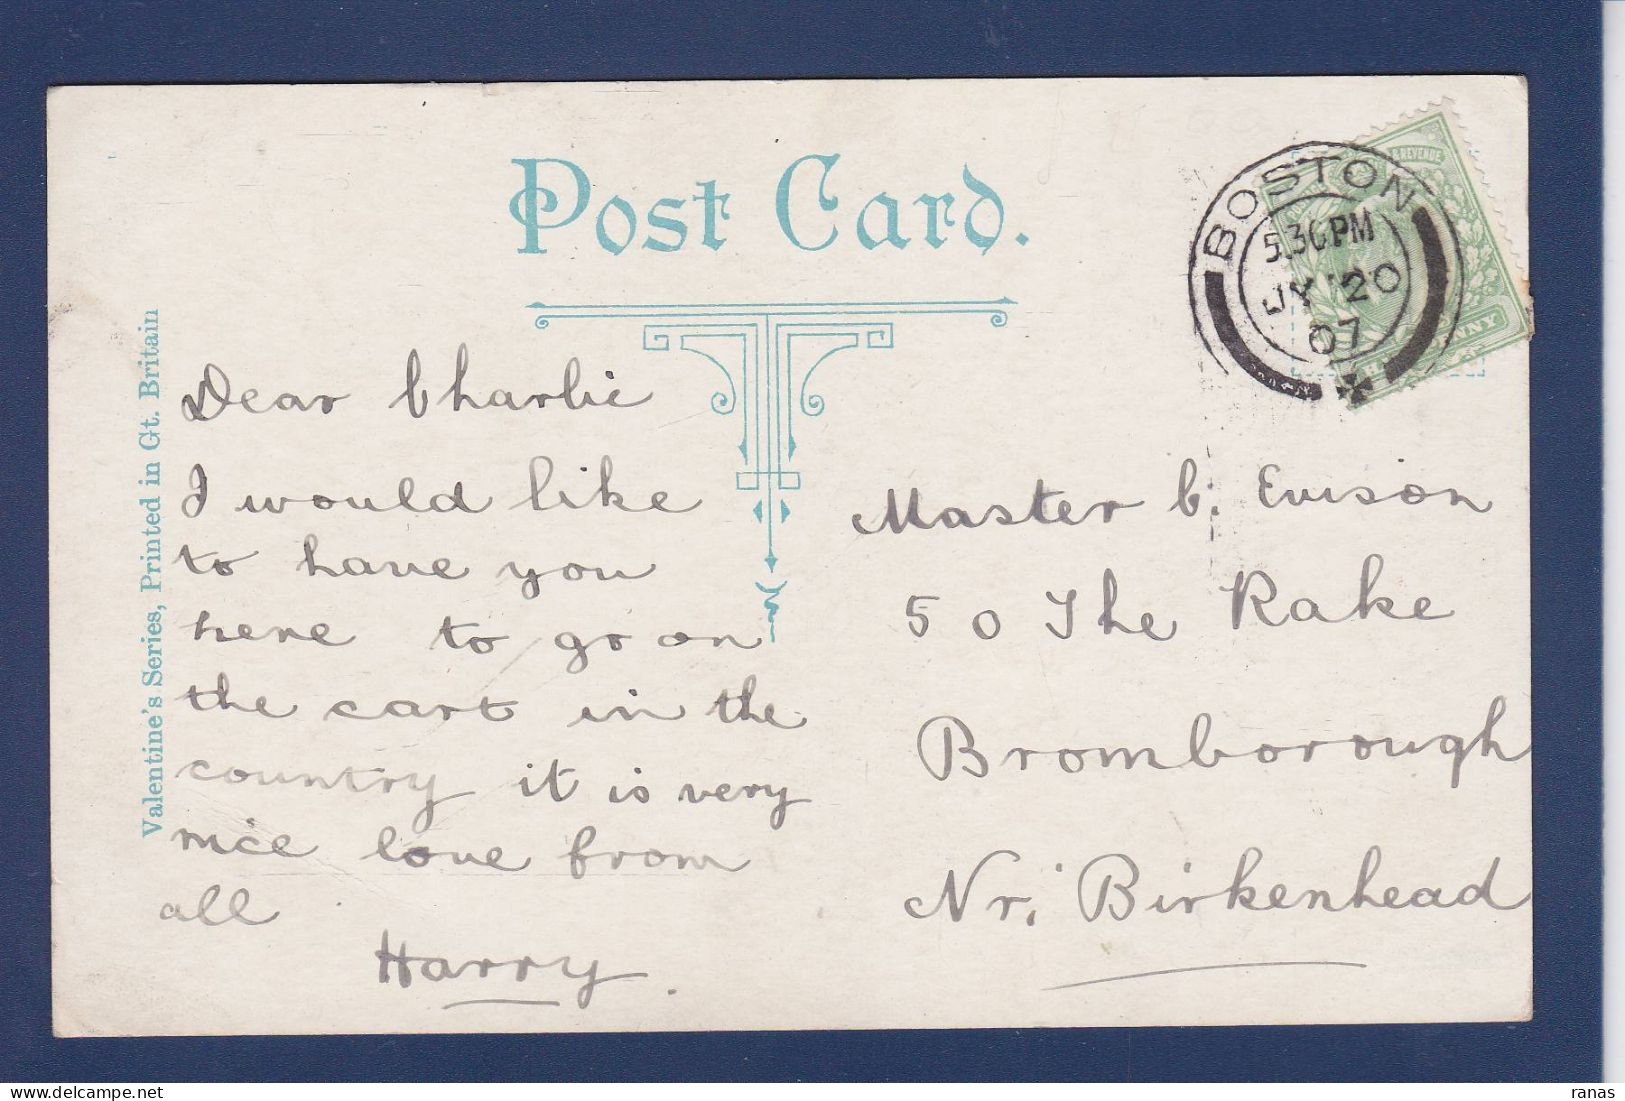 Post Card.
Valentine's Series, Printed in Gt. Britain
BOSTON
5.30PM
JY 20
07
& REVENUE
Dear Charlie
I would like
to have you
here to go on
the cart in the
country it is very
nice love from
all
Harry.
Master C. Evison
50 The Rake
Bromborough
Nr. Birkenhead
ranas